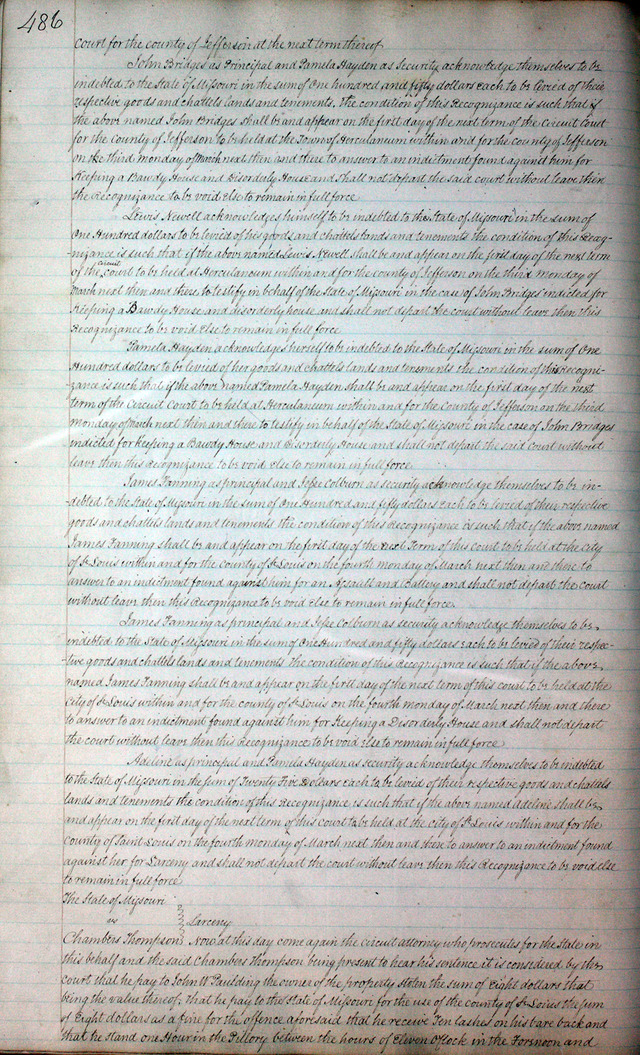 486
court for the county of Jefferson at the next term thereof
John Bridges as Principal and Pamela Hayden as Security acknowledge themselves to be
indebted to the State of Missouri in the sum of One hundred and fifty dollars each to be levied of their
respective goods and chattels lands and tenements, the condition of this Recognizance is such that if
the above named John Bridges shall be and appear on the first day of the next term of the Circuit Court
for the County of Jefferson to be held at the Town of Herculaneum within and for the county of Jefferson
on the third monday of March next then and there to answer to an indictment found against him for
Keeping a Bawdy House and Disorderly House and shall not depart the said court without leave then
the Recognizance to be void Else to remain in full force
Lewis Newell acknowledges himself to be indebted to the State of Missouri in the sum of
One Hundred dollars to be levied of his goods and chattels lands and tenements the condition of this Recog-
nizance is such that if the above named Lewis Newell shall be and appear on the first day of the next term
of the Circuit court to be held at Herculaneum within and for the county of Jefferson on the third monday of
March next then and there to testify in behalf of the State of Missouri in the case of John Bridges indicted for
Keeping a Bawdy House and disorderly house and shall not depart the court without leave then this
Recognizance to be void Else to remain in full force
Pamela Hayden acknowledges herself to be indebted to the State of Missouri in the sum of One
Hundred dollars to be levied of her goods and chattels lands and tenements the condition of this Recogni-
-zance is such that if the above named Pamela Hayden shall be and appear on the first day of the next
term of the Circuit Court to be held at Herculaneum within and for the County of Jefferson on the third
monday of March next then and there to testify in behalf of the State of Missouri in the case of John Bridges
indicted for keeping a Bawdy House and Disorderly House and shall not depart the said court without
leave then this Recognizance to be void Else to remain in full force
James Fanning as principal and Jesse Colburn as security acknowledge themselves to be in-
-debted to the State of Missouri in the sum of One Hundred and fifty dollars each to be levied of their respective
goods and chattels lands and tenements the condition of this Recognizance is such that if the above named
James Fanning shall be and appear on the first day of the next Term of this court to be held at the city
of St Louis within and for the county of St Louis on the fourth monday of March next then and there to
answer to an indictment found against him for an Assault and Battery and shall not depart the court
without leave then this Recognizance to be void Else to remain in full force.
James Fanning as principal and Jesse Colburn as security acknowledge themselves to be
indebted to the State of Missouri in the sum of One Hundred and fifty dollars each to be levied of their respec-
-tive goods and chattels lands and tenements the condition of this Recognizance is such that if the above
named James Fanning shall be and appear on the first day of the next term of this court to be held at the
city of St Louis within and for the county of St Louis on the fourth monday of March next then and there
to answer to an indictment found against him for Keeping a Disorderly House and shall not depart
the court without leave then this Recognizance to be void Else to remain in full force
Adeline as principal and Pamela Hayden as security acknowledge themselves to be indebted
to the State of Missouri in the sum of Twenty Five Dollars each to be levied of their respective goods and chattels
lands and tenements the condition of this Recognizance is such that if the above named Adeline shall be
and appear on the first day of the next term of this court to be held at the city of St Louis within and for the
county of Saint Louis on the fourth monday of March next then and there to answer to an indictment found
against her for Larceny and shall not depart the court without leave then this Recognizance to be void else
to remain in full force
The State of Missouri
vs Larceny
Chambers Thompson Now at this day come again the circuit attorney who prosecutes for the State in
this behalf and the said Chambers Thompson being present to hear his sentence it is considered by the
court that he pay to John W Paulding the owner of the property stolen the sum of Eight dollars that
being the value thereof, that he pay to the State of Missouri for the use of the county of St Louis the sum
of Eight dollars as a fine for the offence aforesaid that he receive Ten lashes on his bare back and
that he stand one Hour in the Pillory between the hours of Eleven O'Clock in the Forenoon and